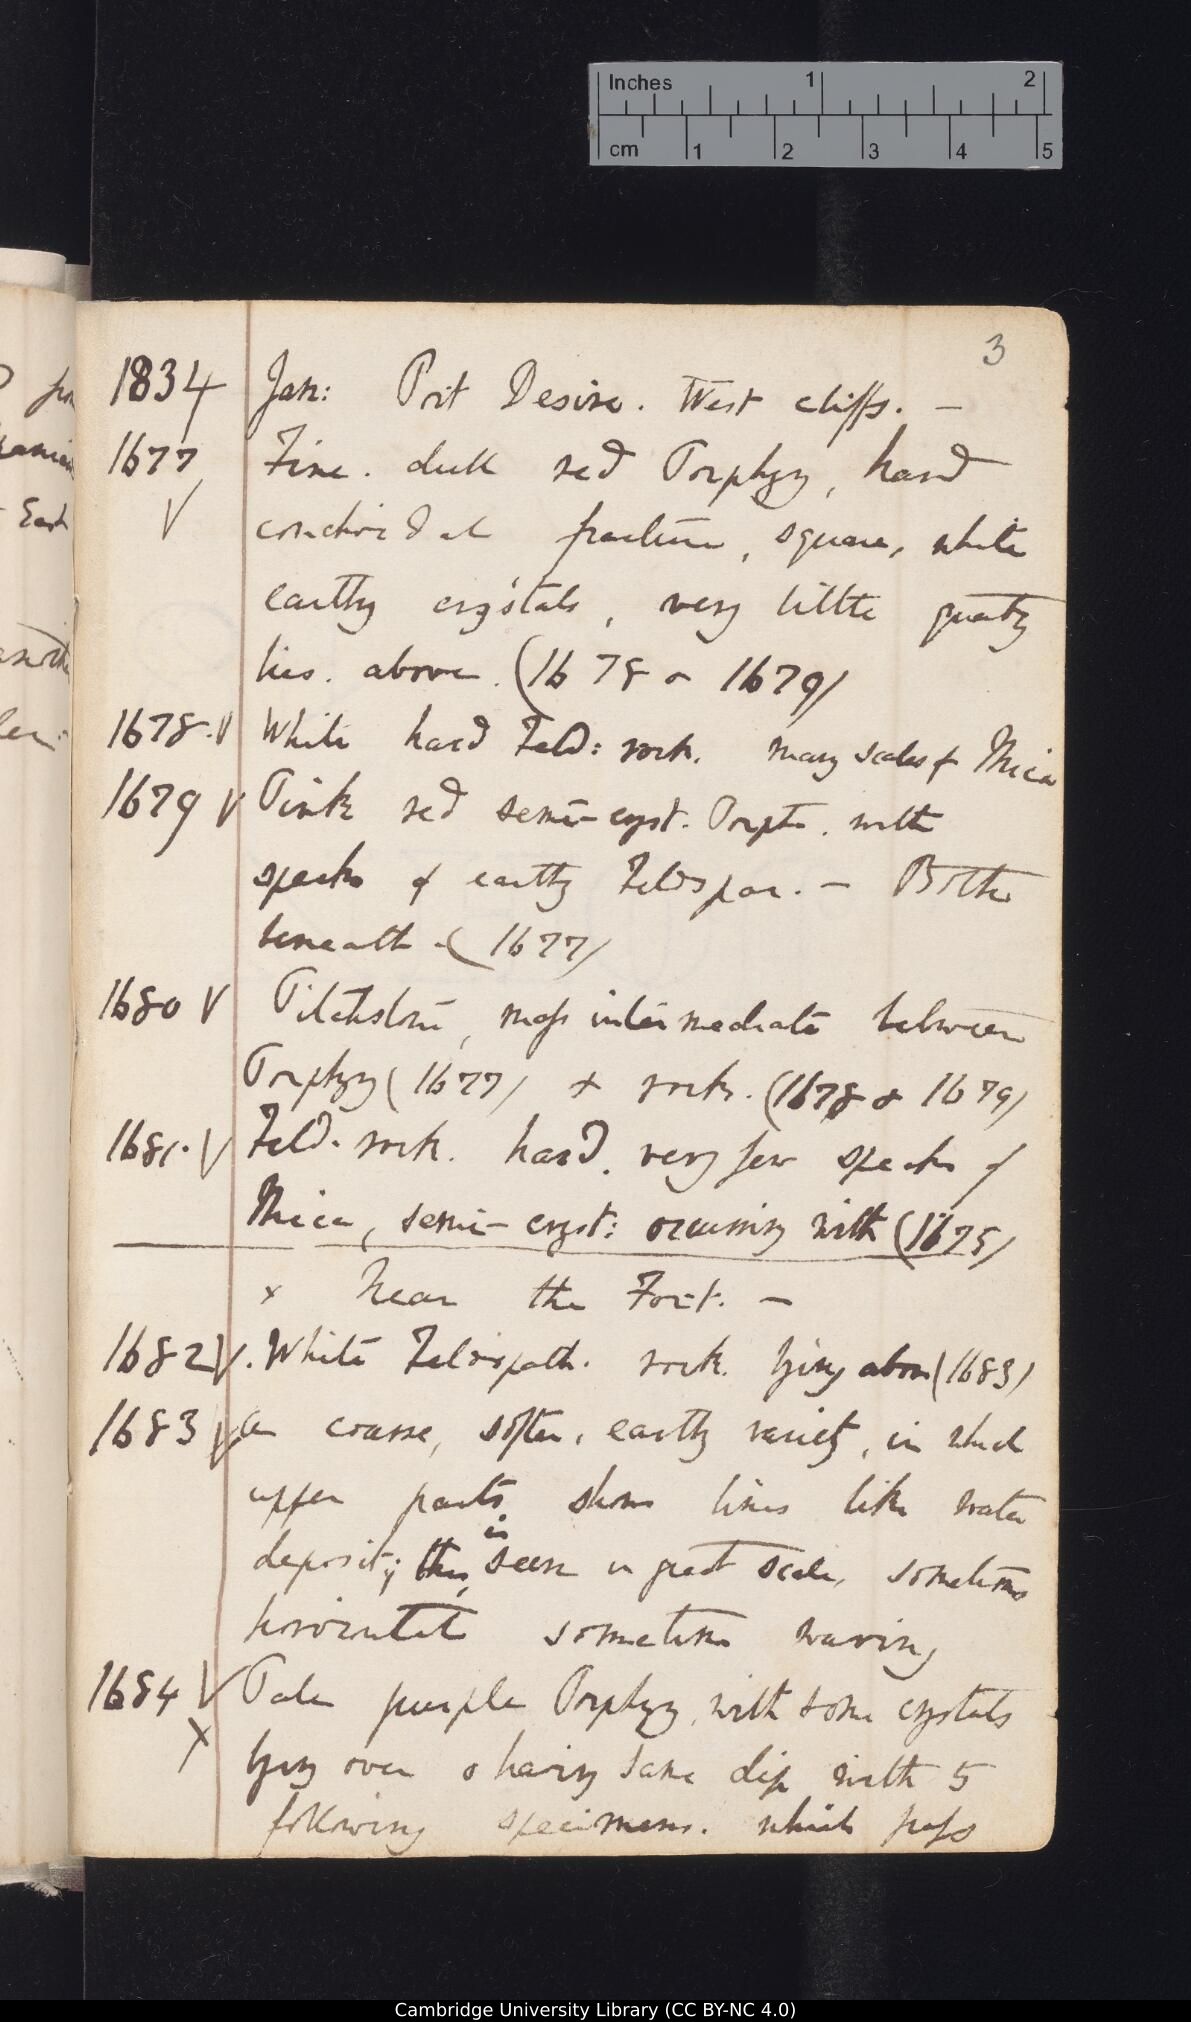 Inches 1 2
cm 1 2 3 4 5
3
1834 Jan: Port Desire. West cliffs. —
1677 V Fine. dull red Porphyry, hard
conchoidal fracture, square, white
earthy crystals, very little quartz
lies. above. (1678 & 1679)
1678. V White hard Feld: rock. many scales of Mica
1679 V Pink red semi-cryst. Porph. with
specks of earthy Feldspar. — Both
beneath (1677)
1680 V Pitchstone, mass intermediate between
Porphyry (1677) & rocks. (1678 & 1679)
1681. V Feld. rock. hard. very few specks of
Mica, semi-cryst: occurring with (1675)
x Near the Fort. —
1682 V. White Feldspath. rock. lying above (1683)
1683 V a coarse, softer, earthy variety, in which
upper parts show lines like water
deposit; this is seen in great scale, sometimes
horizontal sometimes waving
1684 V X Pale purple Porphyry, with some crystals
lying over & having same dip with 5
following specimens. which pass
East
Cambridge University Library (CC BY-NC 4.0)